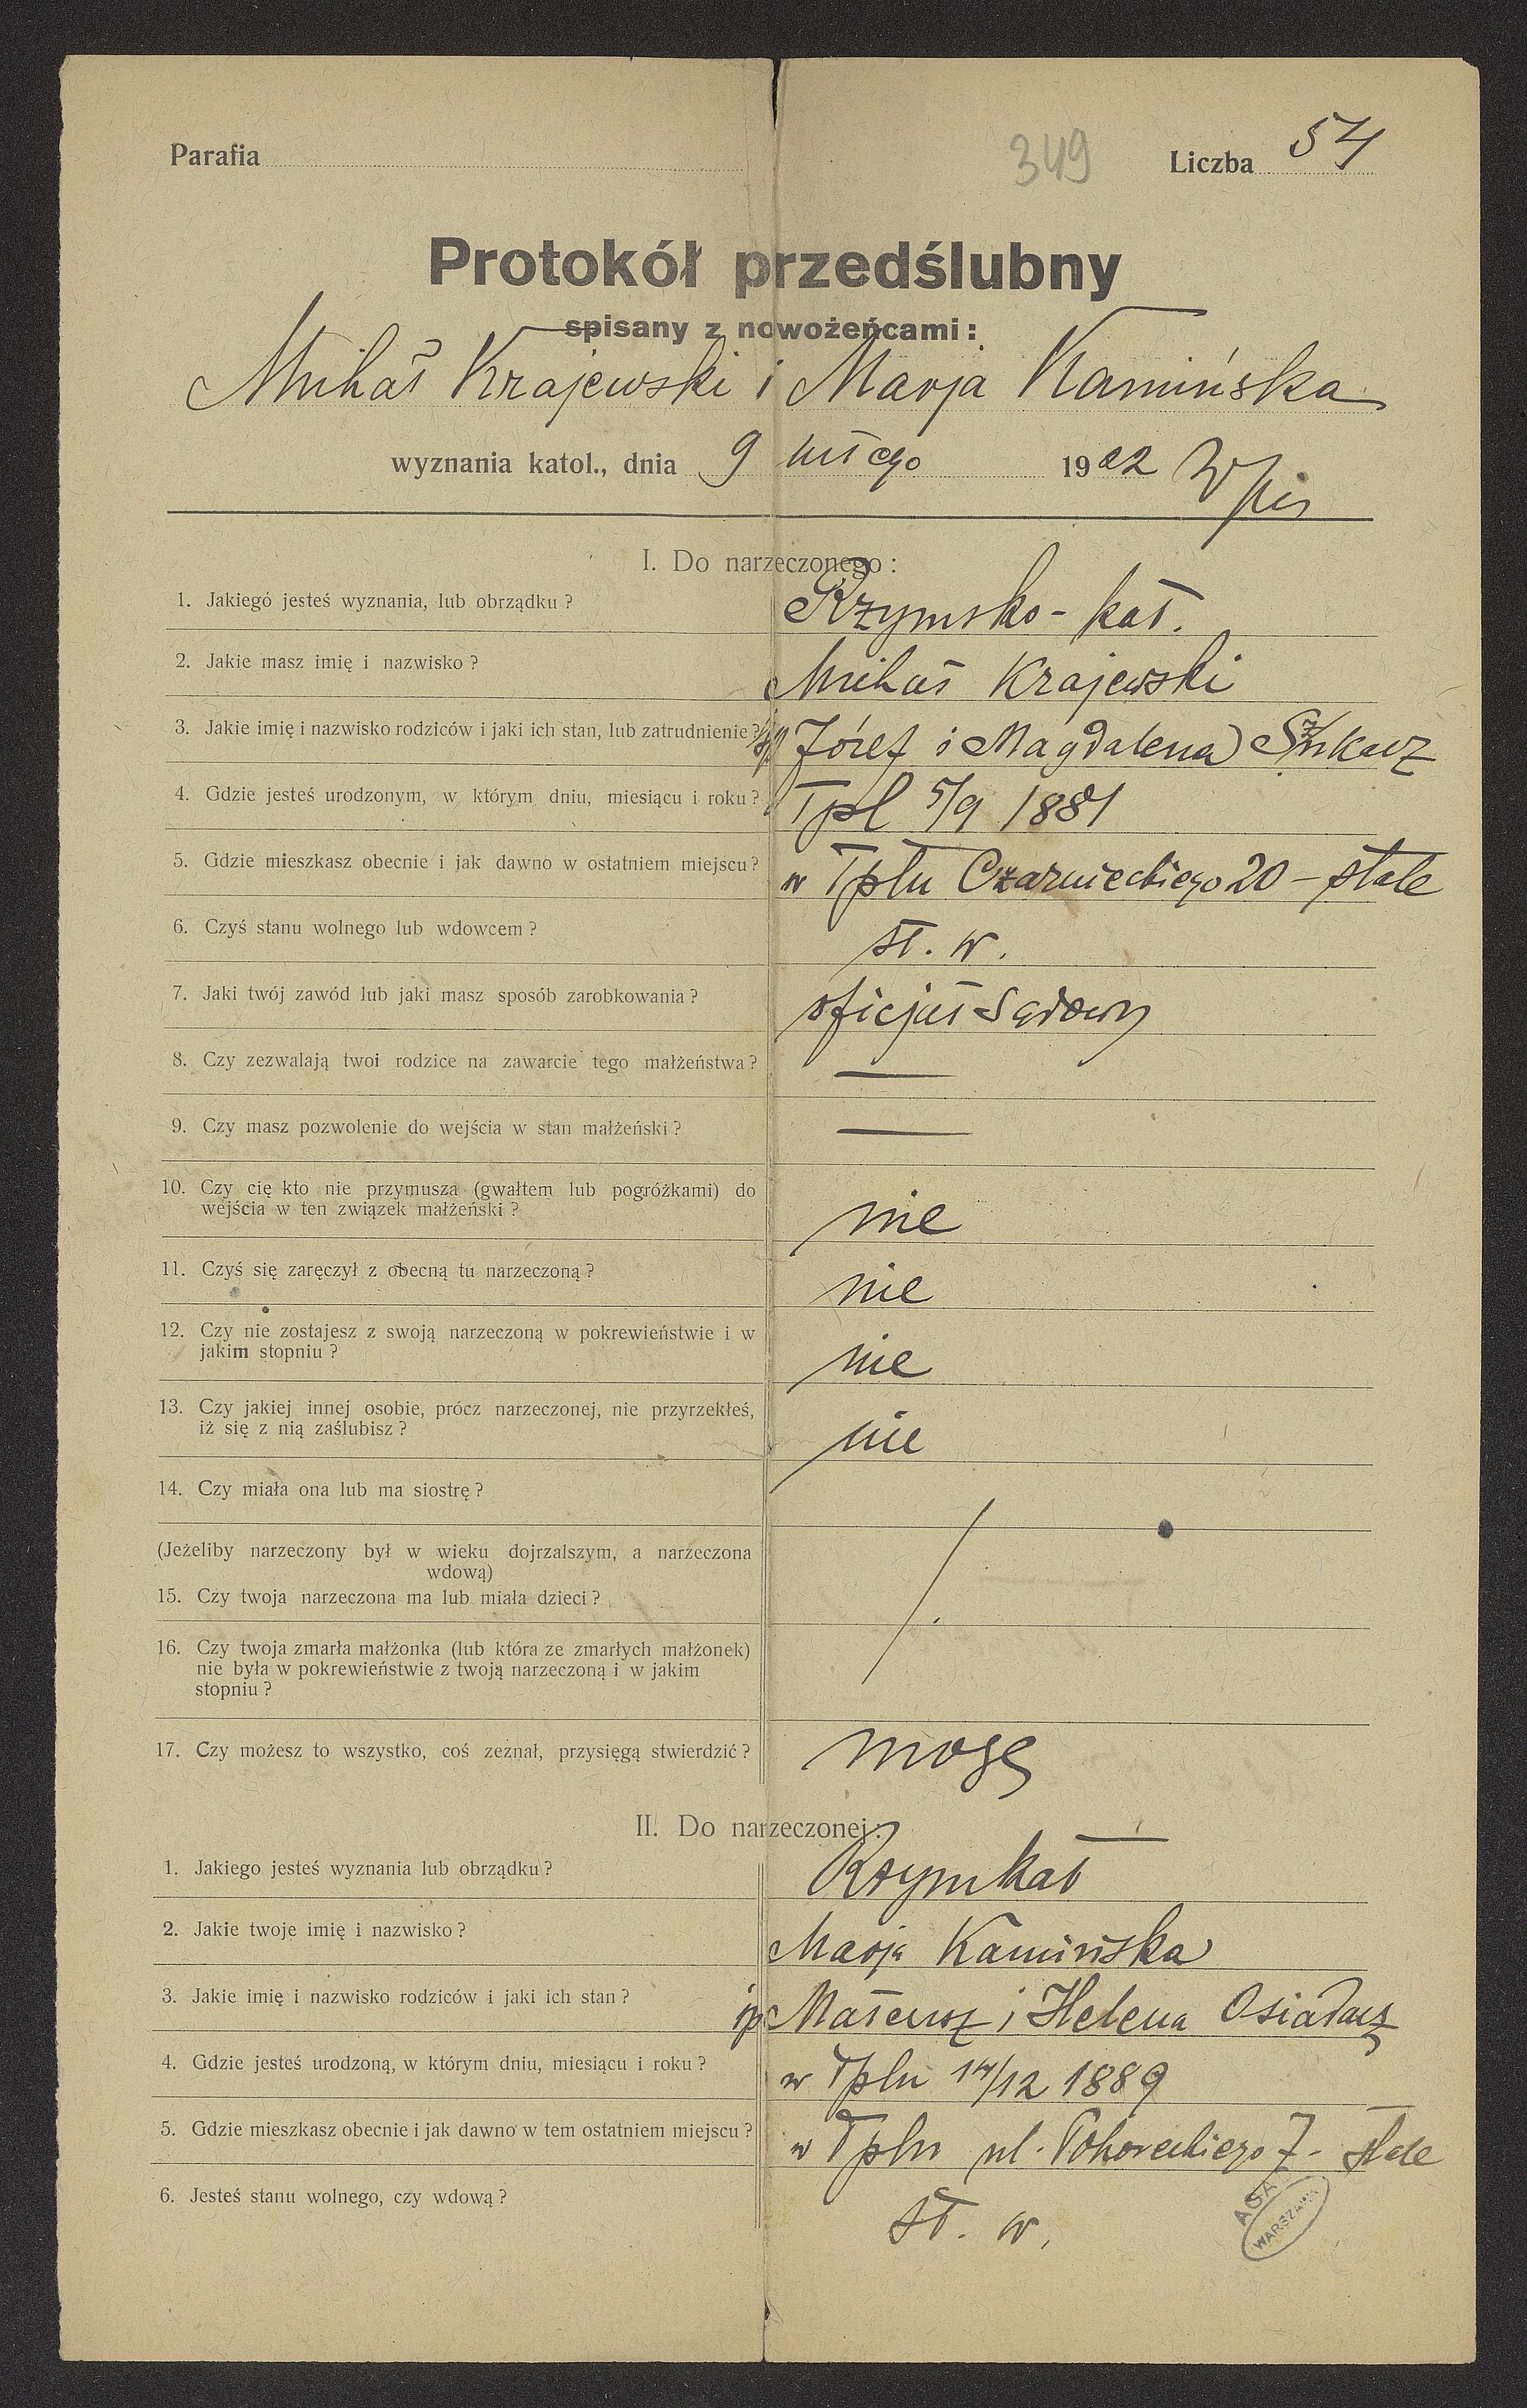 Parafia
349
Liczba 54
Protokół przedślubny
spisany z nowożeńcami:
Michał Krajewski i Marja Kamińska
wyznania katol., dnia 9 lutego 1922
I. Do narzeczonego:
1. Jakiego jesteś wyznania, lub obrządku? Rzymsko-kat.
2. Jakie masz imię i nazwisko? Michał Krajewski
3. Jakie imię i nazwisko rodziców i jaki ich stan, lub zatrudnienie? Józef i Magdalena
4. Gdzie jesteś urodzonym, w którym dniu, miesiącu i roku? Tpl 5/9 1881
5. Gdzie mieszkasz obecnie i jak dawno w ostatniem miejscu? w Tplu Czarnieckiego 20 – stale
6. Czyś stanu wolnego lub wdowcem? st. w.
7. Jaki twój zawód lub jaki masz sposób zarobkowania? oficjał sądowy
8. Czy zezwalają twoi rodzice na zawarcie tego małżeństwa? —
9. Czy masz pozwolenie do wejścia w stan małżeński? —
10. Czy cię kto nie przymusza (gwałtem lub pogróżkami) do
wejścia w ten związek małżeński? nie
11. Czyś się zaręczył z obecną tu narzeczoną? nie
12. Czy nie zostajesz z swoją narzeczoną w pokrewieństwie i w
jakim stopniu? nie
13. Czy jakiej innej osobie, prócz narzeczonej, nie przyrzekłeś,
iż się z nią zaślubisz? nie
14. Czy miała ona lub ma siostrę?
(Jeżeliby narzeczony był w wieku dojrzalszym, a narzeczona
wdową)
15. Czy twoja narzeczona ma lub miała dzieci?
16. Czy twoja zmarła małżonka (lub która ze zmarłych małżonek)
nie była w pokrewieństwie z twoją narzeczoną i w jakim
stopniu?
17. Czy możesz to wszystko, coś zeznał, przysięgą stwierdzić? mogę
II. Do narzeczonej:
1. Jakiego jesteś wyznania lub obrządku? Rzym kat
2. Jakie twoje imię i nazwisko? Marja Kamińska
3. Jakie imię i nazwisko rodziców i jaki ich stan? śp Mateusz i Helena Osiadacz
4. Gdzie jesteś urodzoną, w którym dniu, miesiącu i roku? w Tplu 14/12 1889
5. Gdzie mieszkasz obecnie i jak dawno w tem ostatniem miejscu? w Tplu ul. 7 - stale
6. Jesteś stanu wolnego, czy wdową? st. w.
AGAD
WARSZAWA